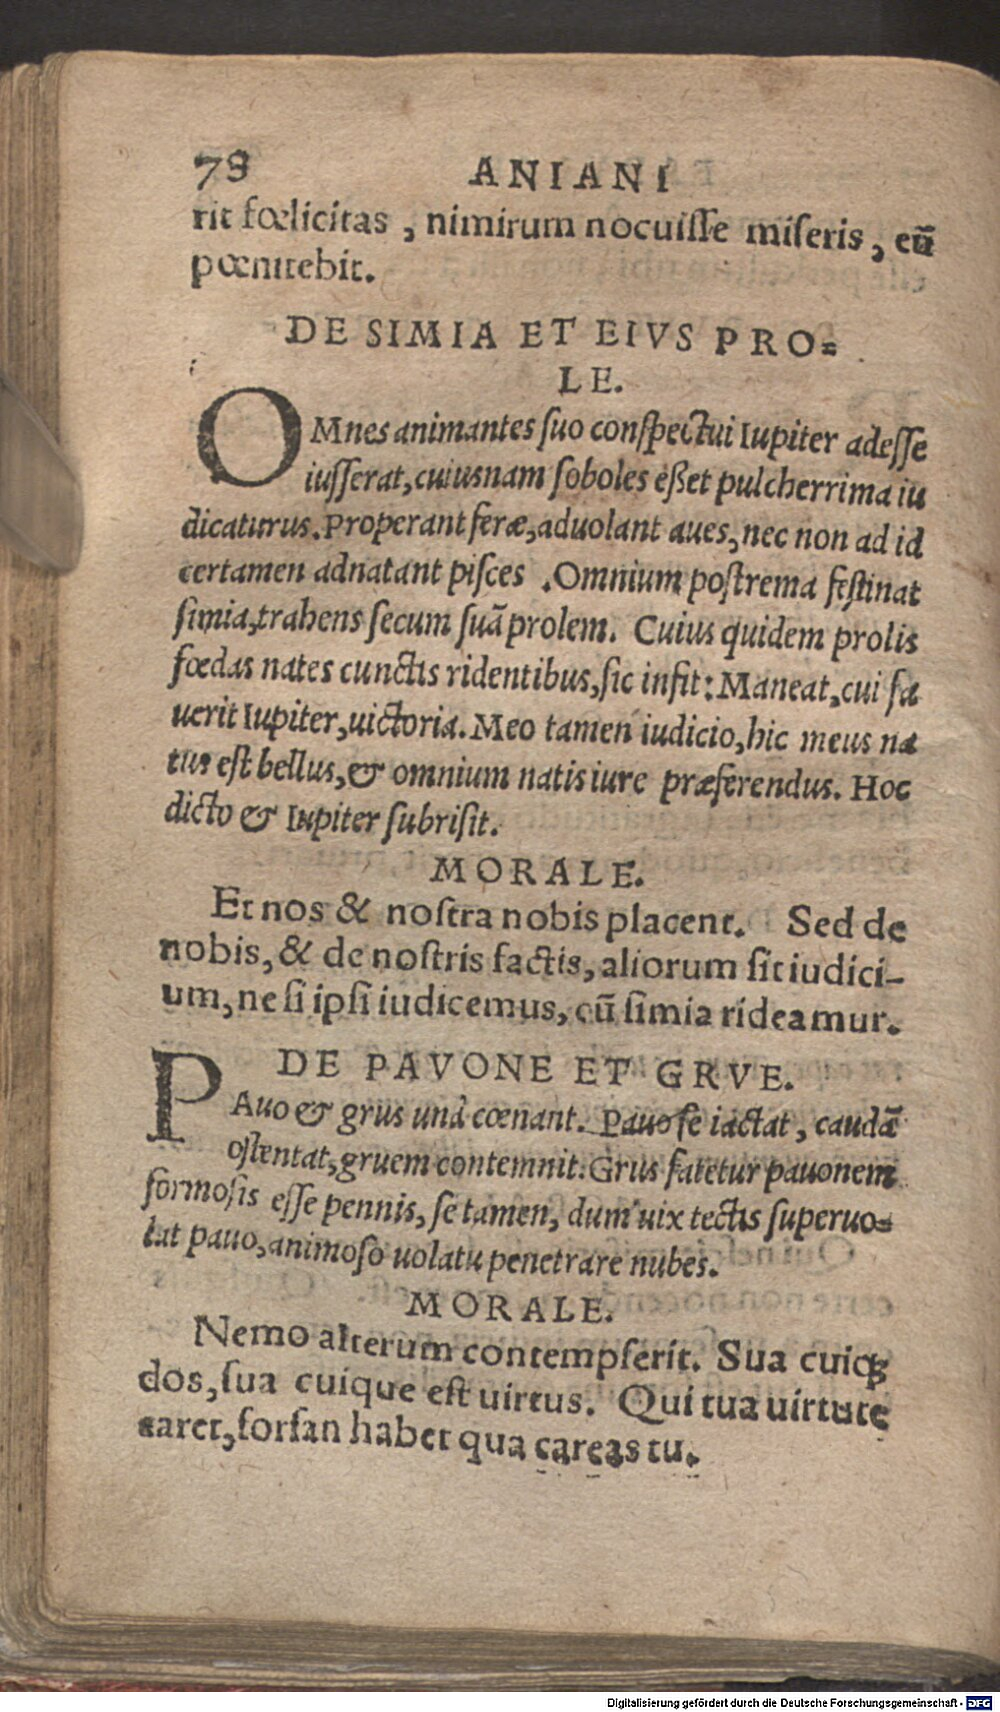 78 ANIANI
rit fœlicitas, nimirum nocuisse miseris, eū
pœnitebit.
DE SIMIA ET EIVS PRO=
LE.
OMnes animantes suo conspectui Iupiter adesse
iusserat, cuiusnam soboles eßet pulcherrima iu
dicaturus. Properant feræ, aduolant aues, nec non ad id
certamen adnatant pisces. Omnium postrema festinat
simia, trahens secum suā prolem. Cuius quidem prolis
fœdas nates cunctis ridentibus, sic infit: Maneat, cui fa
uerit Iupiter, uictoria. Meo tamen iudicio, hic meus na
tus est bellus, & omnium natis iure præferendus. Hoc
dicto & Iupiter subrisit.
MORALE.
Et nos & nostra nobis placent. Sed de
nobis, & de nostris factis, aliorum sit iudici-
um, ne si ipsi iudicemus, cū simia rideamur.
DE PAVONE ET GRVE.
PAuo & grus unà cœnant. Pauo se iactat, caudā
ostentat, gruem contemnit. Grus fatetur pauonem
formosis esse pennis, se tamen, dum uix tectis superuo=
lat pauo, animoso uolatu penetrare nubes.
MORALE.
Nemo alterum contempserit. Sua cuiqꝫ
dos, sua cuique est uirtus. Qui tua uirtute
caret, forsan habet qua careas tu.
Digitalisierung gefördert durch die Deutsche Forschungsgemeinschaft - DFG